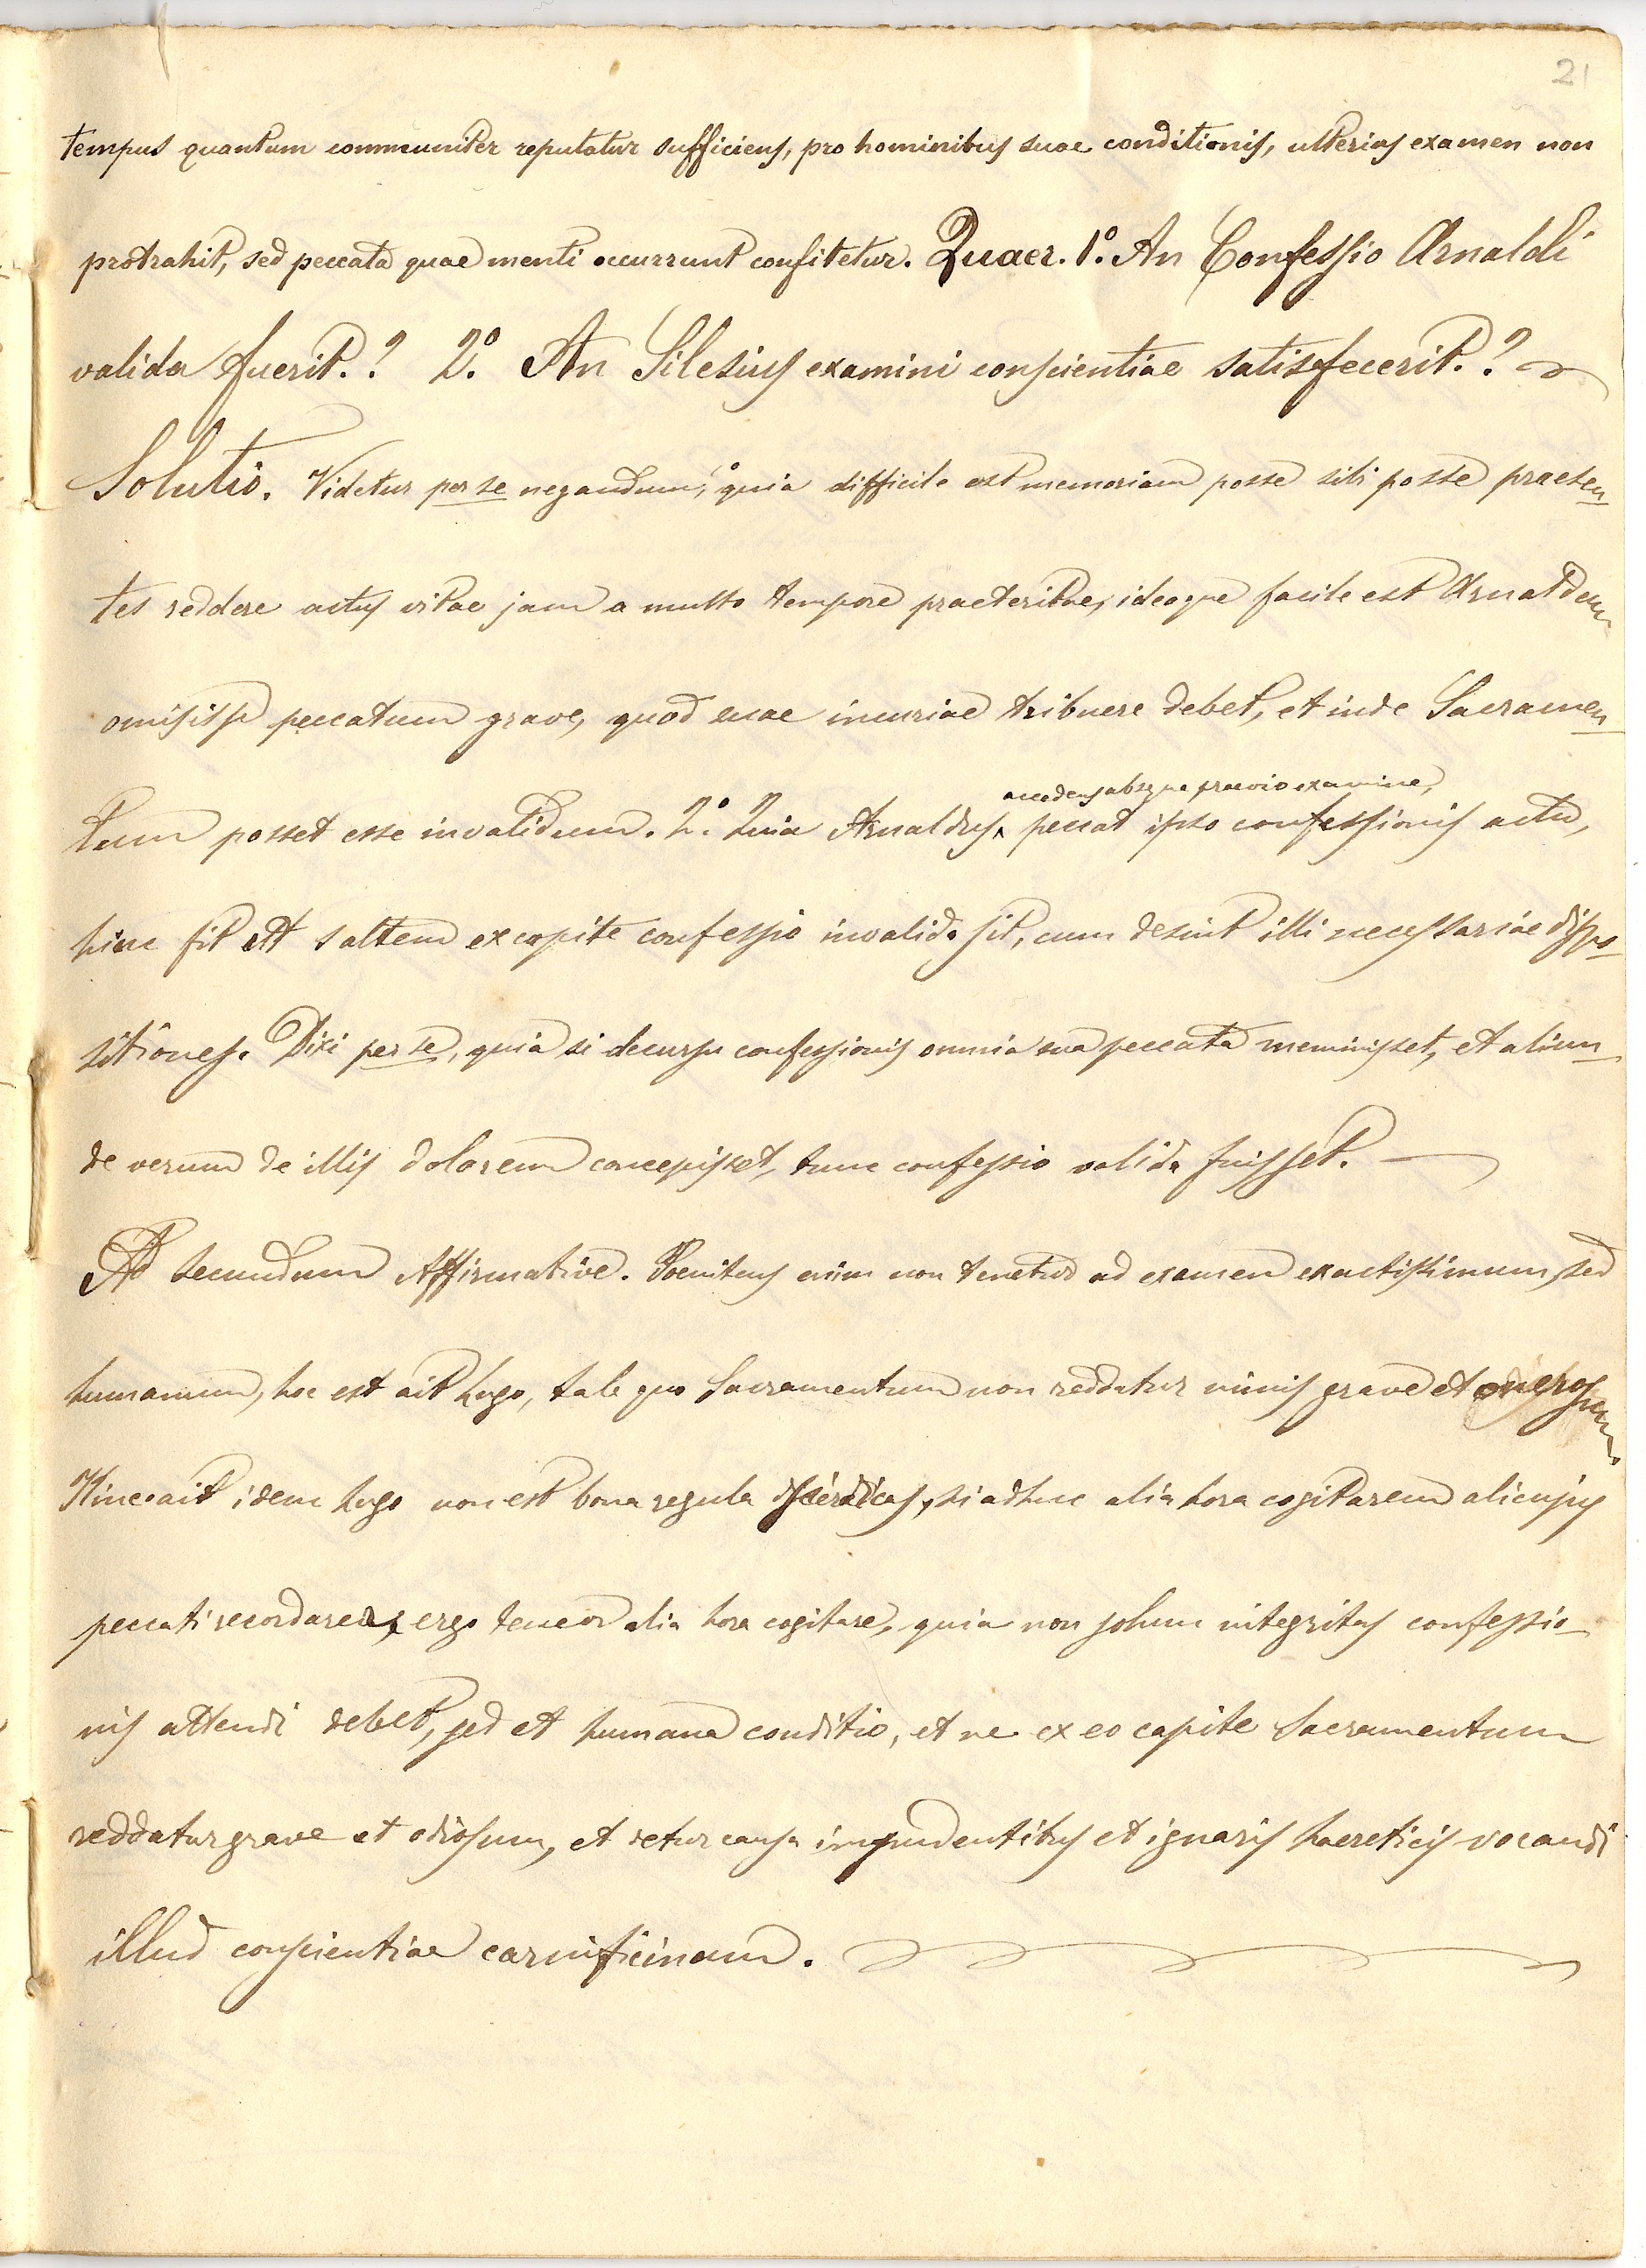 21
tempus quantum communiter reputatur sufficiens, pro hominibus suae conditionis, ulterius examen non
protrahit, sed peccata quae menti occurrunt confitetur. Quaer. 1.º An Confessio Arnaldi
valida fuerit.? 2.º An Silesius examini conscientiae satisfecerit.?
Solutio. Videtur per se negandum, 1.º quia difficile est memoriam posse sibi posse praesen
tes reddere actus vitae jam a multo tempore praeteritae, ideoque facile est Arnaldum
omisisse peccatum grave, quod suae incuriae tribuere debet, et inde Sacramen
accedens absque praevio examine,
tum posset esse invalidum. 2.º Quia Arnaldus peccat ipso confessionis actu,
hinc fit ut saltem ex capite confessio invalida sit, cum desint illi necessariae dispo
sitiones. Dixi per se, quia si decursu confessionis omnia sua peccata meminisset, et aliun
de verum de illis dolorem concepisset, tunc confessio valida fuisset.
Ad secundum Affirmative. Poenitens enim non tenetur ad examen exactissimum, sed
humanum, hoc est ait Lugo, tale quo Sacramentum non reddatur nimis grave et
Hinc ait idem Lugo non est bona regula si adhuc alia hora cogitarem alicujus
peccati recordarer, ergo teneor alia hora cogitare, quia non solum integritas confessio
nis attendi debet, sed et humana conditio, et ne ex eo capite Sacramentum
reddatur grave et odiosum, et detur causa impudentibus et ignaris haereticis vocandi
illud conscientiae carnificinam.